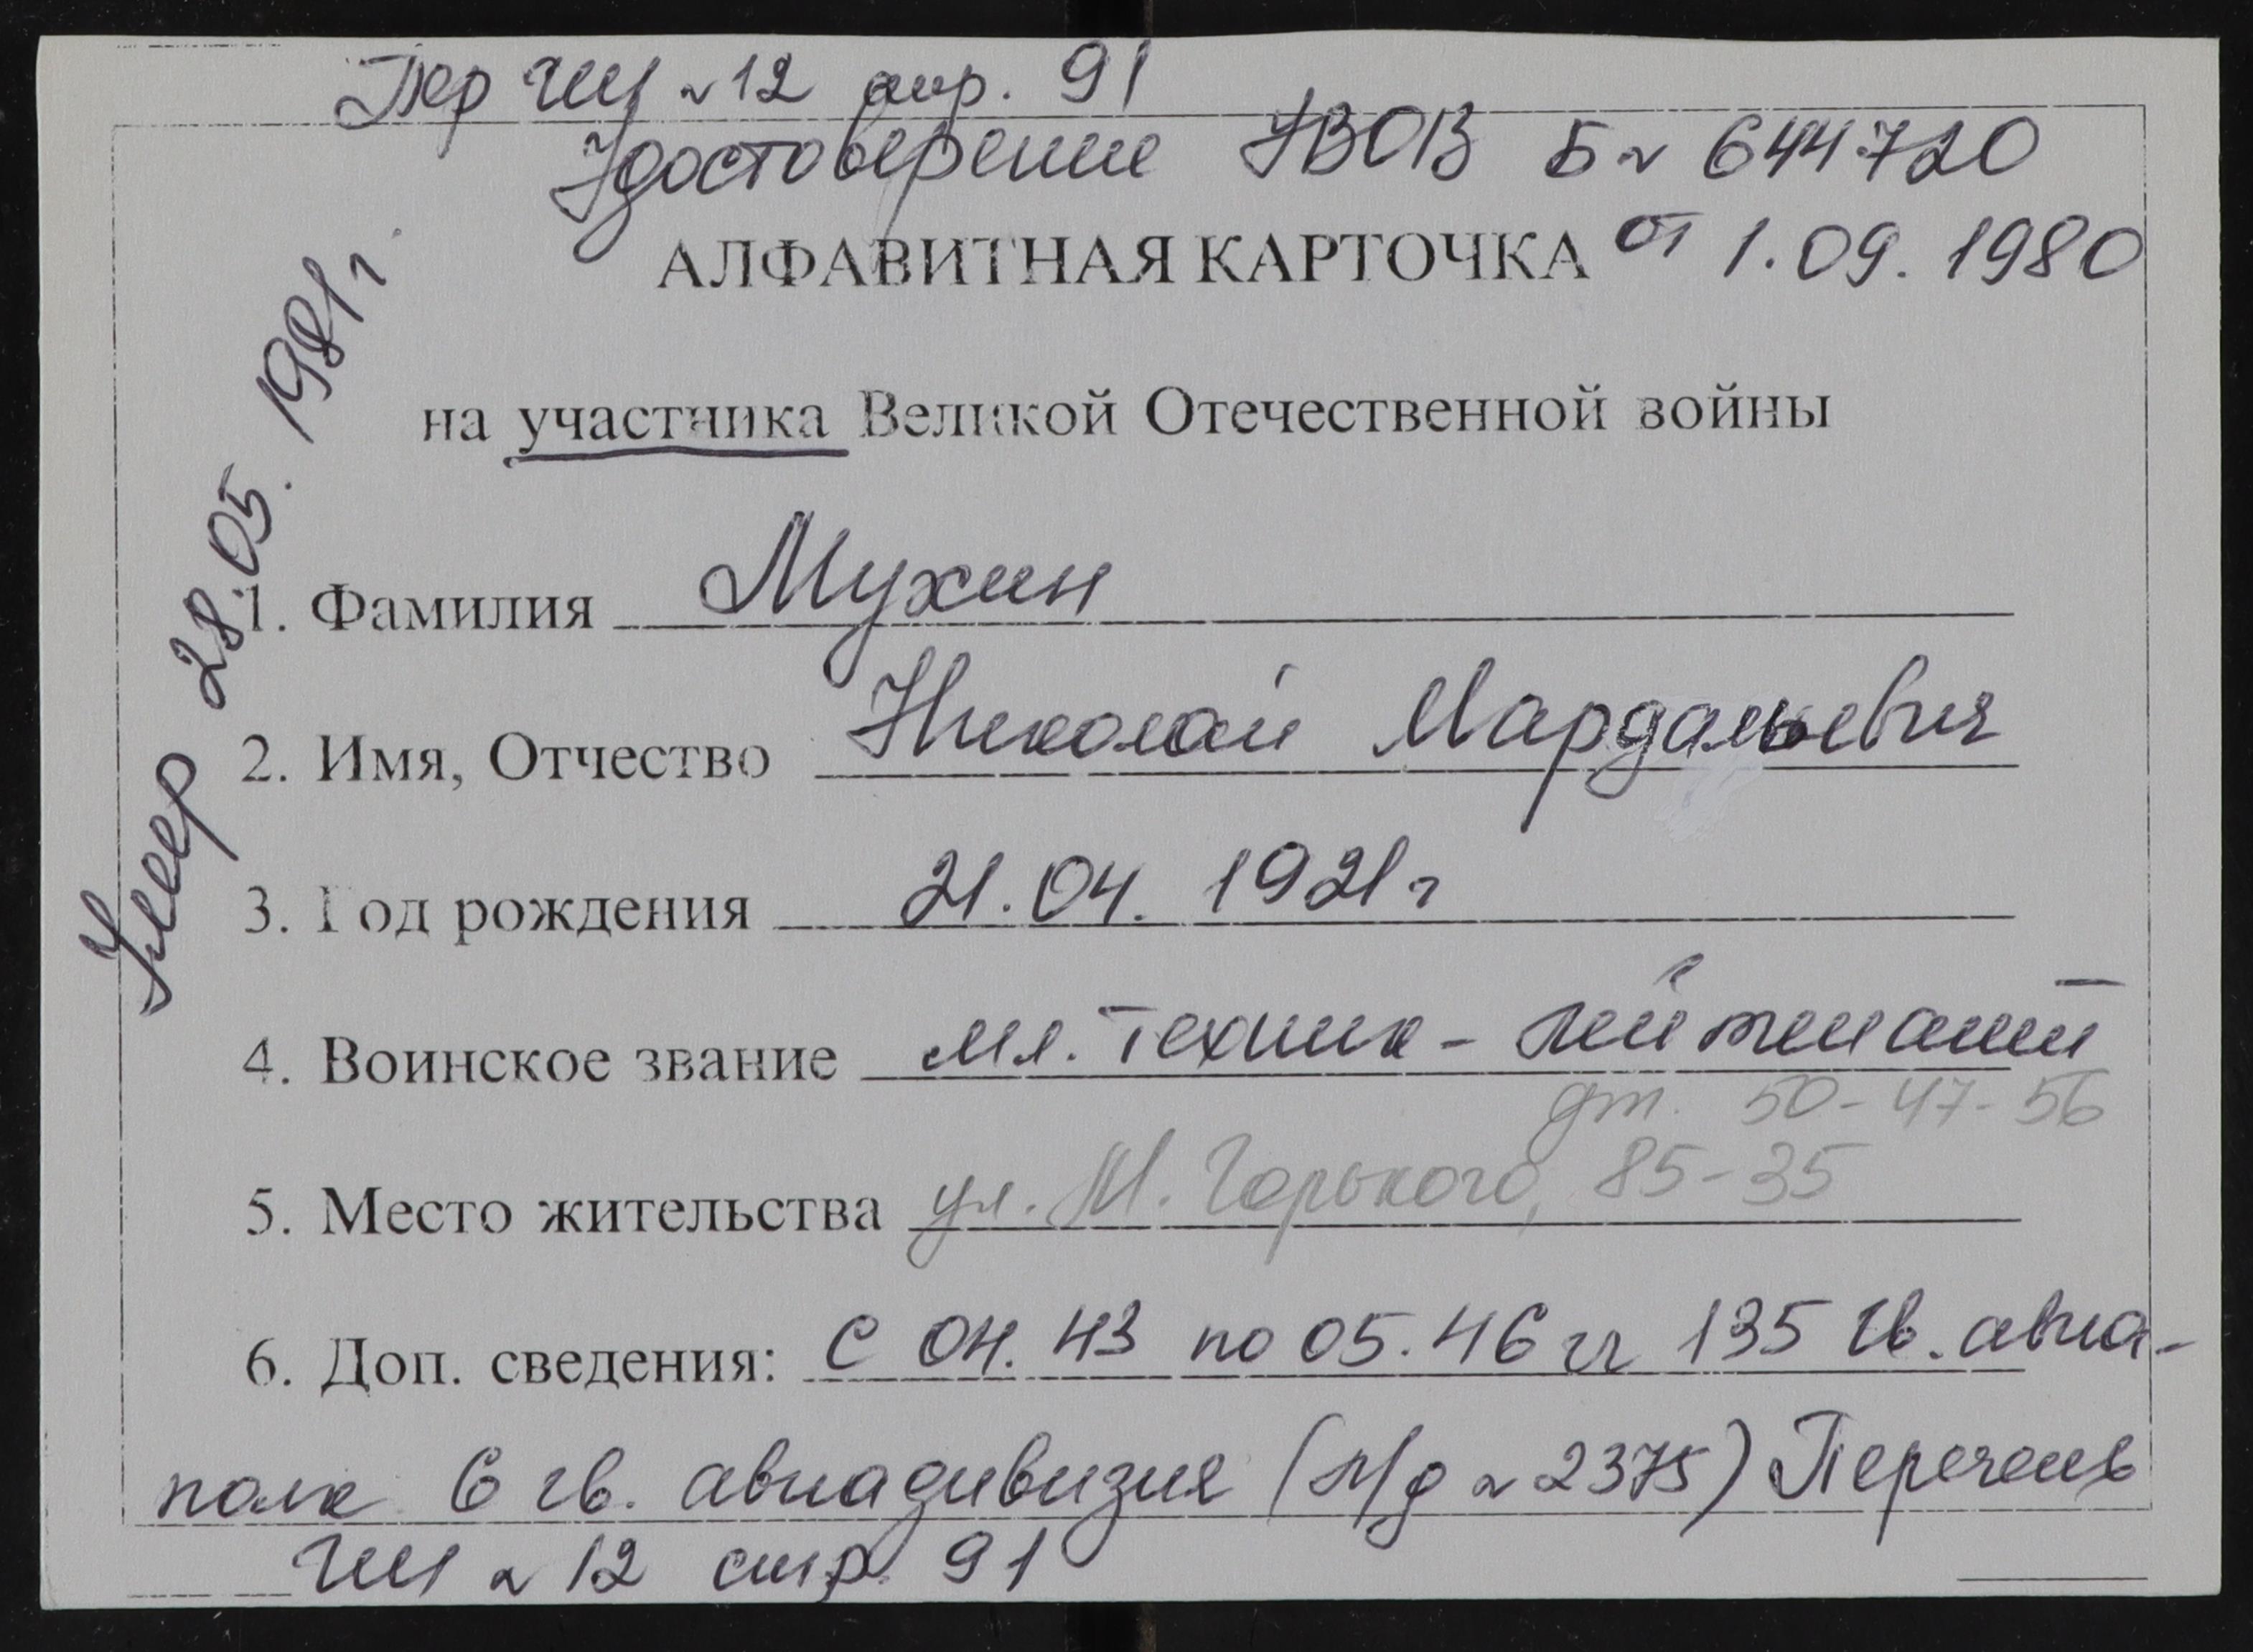 Пер ГШ № 12 стр. 91
Удостоверение УВОВ Б № 644720
АЛФАВИТНАЯ КАРТОЧКА от 1.09.1980
на участника Великой Отечественной войны
Умер 28.05.1981 г.
1. Фамилия Мухин
2. Имя, Отчество Николай Мардальевич
3. Год рождения 21.04.1921 г
4. Воинское звание мл. техник-лейтенант
дт. 50-47-56
5. Место жительства ул. М. Горького, 85-35
6. Доп. сведения: С 04.43 по 05.46 гг 135 гв. авиа-
полк 6 гв. авиадивизия (л/д № 2375) Перечень
ГШ № 12 стр. 91